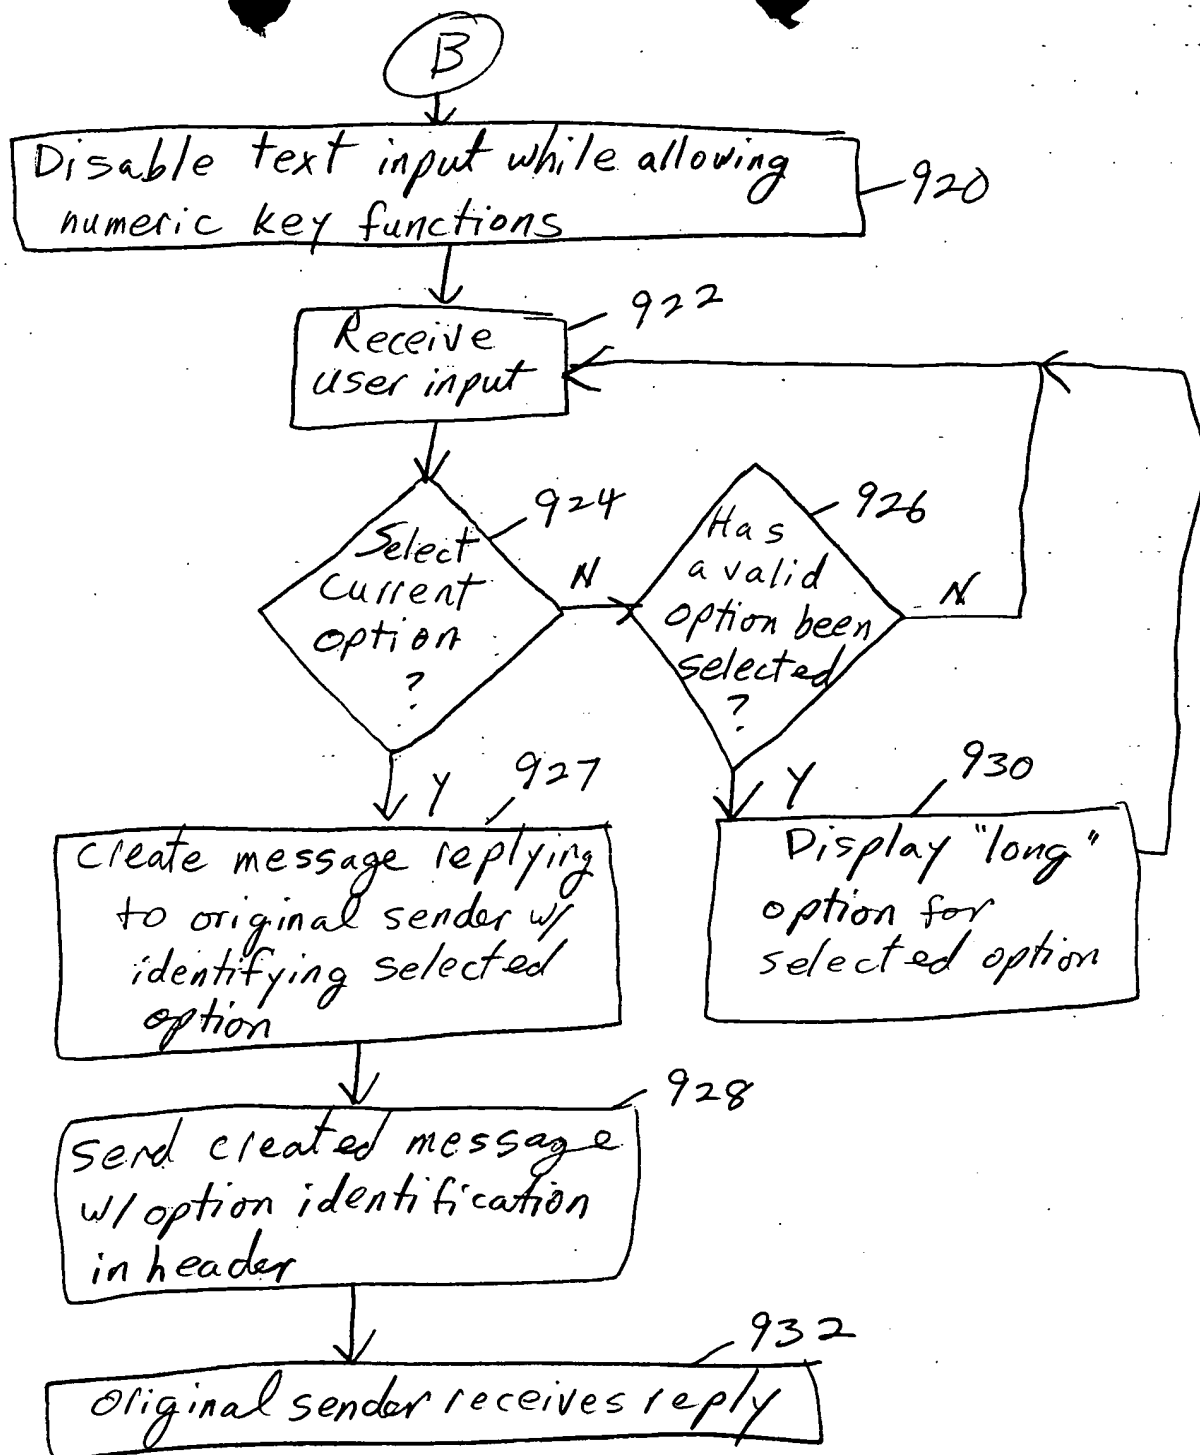 B
Disable text input while allowing
numeric key functions
920
Receive
user input
922
Select
current
option
?
924
N
Has
a valid
option been
selected
?
926
N
Y
927
Y
930
Create message replying
to original sender w/
identifying selected
option
Display "long"
option for
selected option
Send created message
w/ option identification
in header
928
Original sender receives reply
932